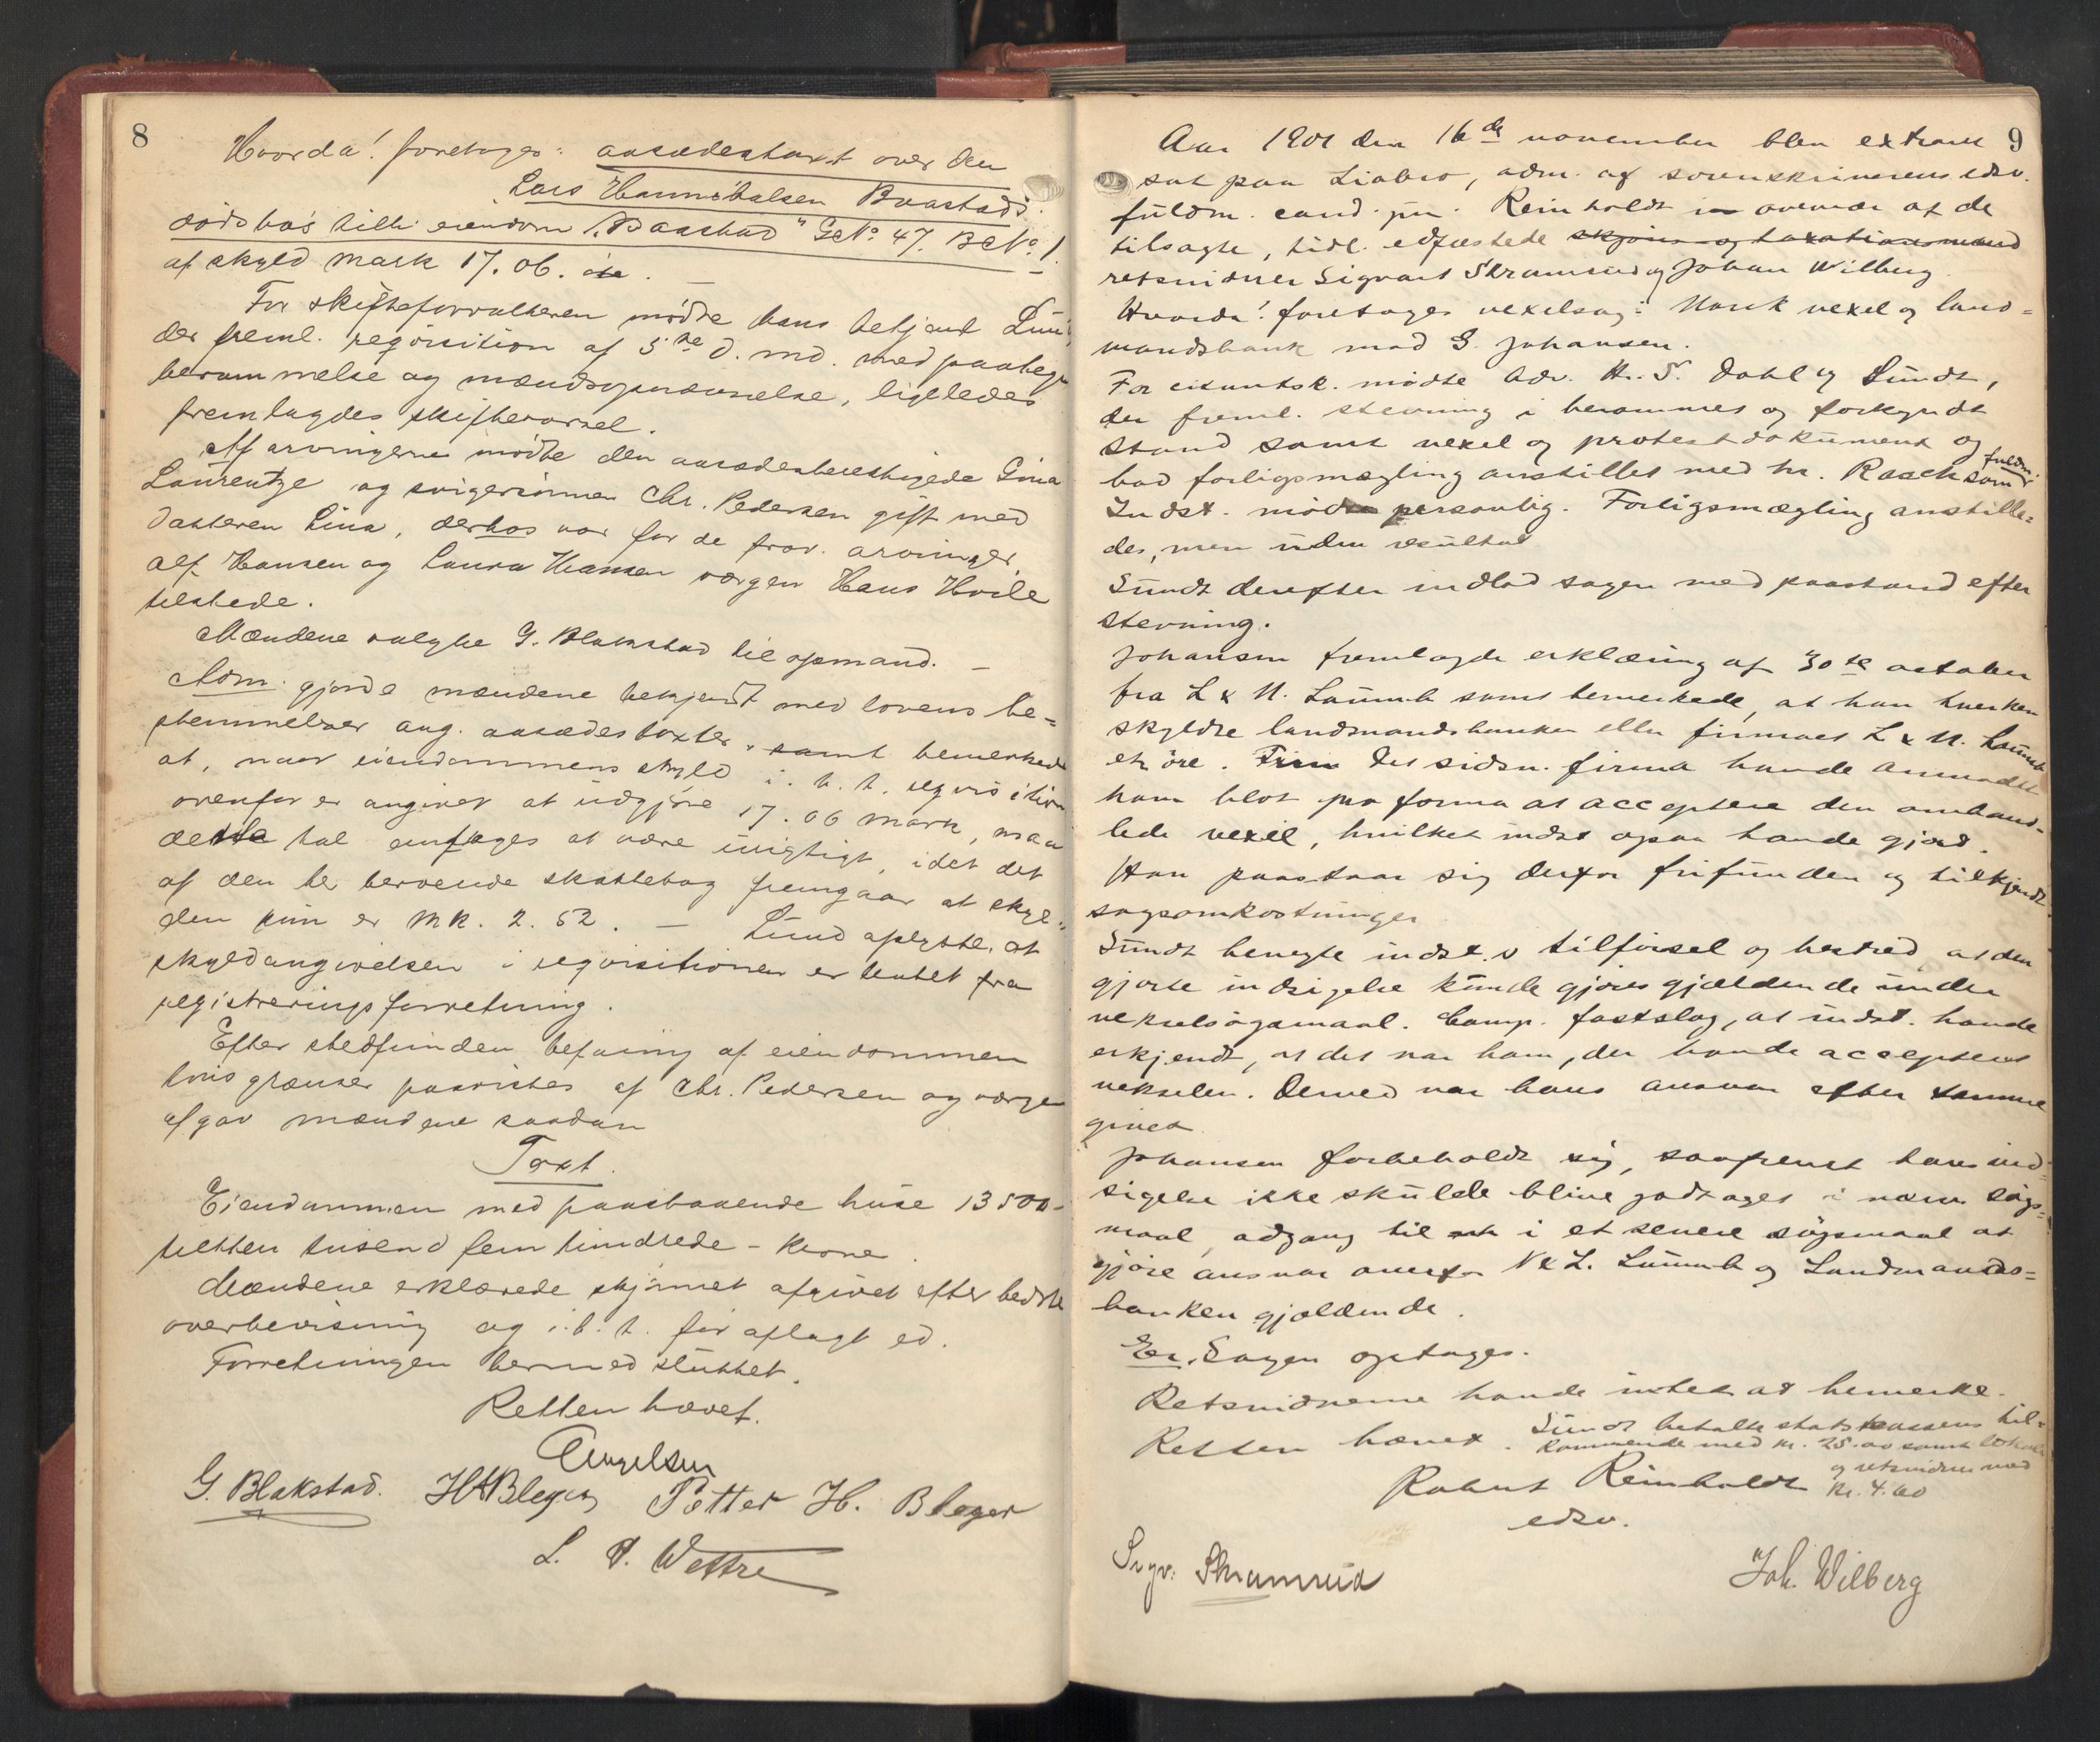 8
Hvorda! foretoges: aasædestaxt over den
Lars Hannibalsen Baastads
dødsbos tilh. eiendom "Baastad" GNo. 47. BNo. 1.
af skyld mark 17.06.
For skifteforvalteren mødte hans betjent Lund,
der freml. reqvisition af 5te d. md. med paateg
berammelse og mændsopnævnelse, ligeledes
fremlagdes skiftevarsel.
Af arvingerne mødte den aasædesberettigede Gina
Laurentze og svigersønnen Chr. Pedersen gift med
datteren Lina, derhos var for de frav. arvinger,
Alf Hansen og Laura Hansen værgen Hans Hvile
tilstede.
Mændene valgte G. Blakstad til opmand. —
Adm. gjorde mændene bekjendt med lovens be=
stemmelser ang. aasædestaxter, samt bemerkede
at, naar eiendommens skyld i. h. t. reqvisition
ovenfor er angivet at udgjøre 17.06 mark, maa
dette tal antages at være urigtigt, idet det
af den her beroende skattebog fremgaar at skyl=
den kun er mk. 2.52. — Lund oplyste, at
skyldangivelsen i reqvisitionen er hentet fra
registreringsforretning.
Efter stedfunden befaring af eiendommen
hvis grænser paavistes af Chr. Pedersen og værgen
afgav mændene saadan
Taxt.
Eiendommen med paastaaende huse 13500-
tretten tusend fem hundrede - krone.
Mændene erklærede skjønnet afgivet efter bedste
overbevisning og i. h. t. før aflagt ed.
Forretningen hermed sluttet.
Retten hævet.
Engelsen
G. Blakstad. H Bleger Petter H. Bleger
L. P. Wettre
9
Aar 1901 den 16de november blev extraret
sat paa Liabro, adm. af sorenskriverens edsv.
fuldm. cand. jur. Reinholdt i overvær af de
tilsagte, tidl. edfæstede skjøns- og taxationsmænd
retsvidner Sigvart Skramrud og Johan Wilberg
Hvorda! foretoges vexelsag: Norsk vexel og land=
mandsbank mod G. Johansen.
For citantsk. mødte Adv. Hr. S. Dahl og Sundt,
der freml. stevning i berammet og forkyndt
stand samt vexel og protestdokument og
bad forligsmægling anstillet med hr. Raach som fuldm.
Indst. mødte personlig. Forligsmægling anstille=
des, men uden resultat
Sundt derefter indlod sagen med paastand efter
stevning.
Johansen fremlagde erklæring af 30te october
fra L & N. Laumb samt bemerkede, at han hverken
skyldte landmandsbanken eller firmaet L & N. Laumb
et øre. Det sidsn. firma havde anmodet
ham blot pro forma at acceptere den omhand-
lede vexel, hvilket indst ogsaa havde gjort.
Han paastaar sig derfor frifunden og tilkjendt
sagsomkostninger
Sundt benegte indst.s tilførsel og bestred, at den
gjorte indsigelse kunde gjøres gjældende under
vekselsøgsmaal. Comp. fastslog, at indst. havde
erkjendt, at det var ham, der havde acceptert
vekselen. Derved var hans ansvar efter samme
givet
Johansen forbeholdt sig, saafremt hans ind=
sigelse ikke skulde blive godtaget i nærv. søgs=
maal, adgang til i et senere søgsmaal at
gjøre ansvar overfor N & L. Laumb og Landmands=
banken gjældende.
Er. Sagen optages.
Retsvidnerne havde intet at bemerke.
Retten hævet. Sundt betalte statskassens til=
kommende med kr. 25.00 samt lokale
og retsvidner med
kr. 4.60
Robert Reinholdt
edsv.
Sigv: Skramrud
Joh. Wilberg